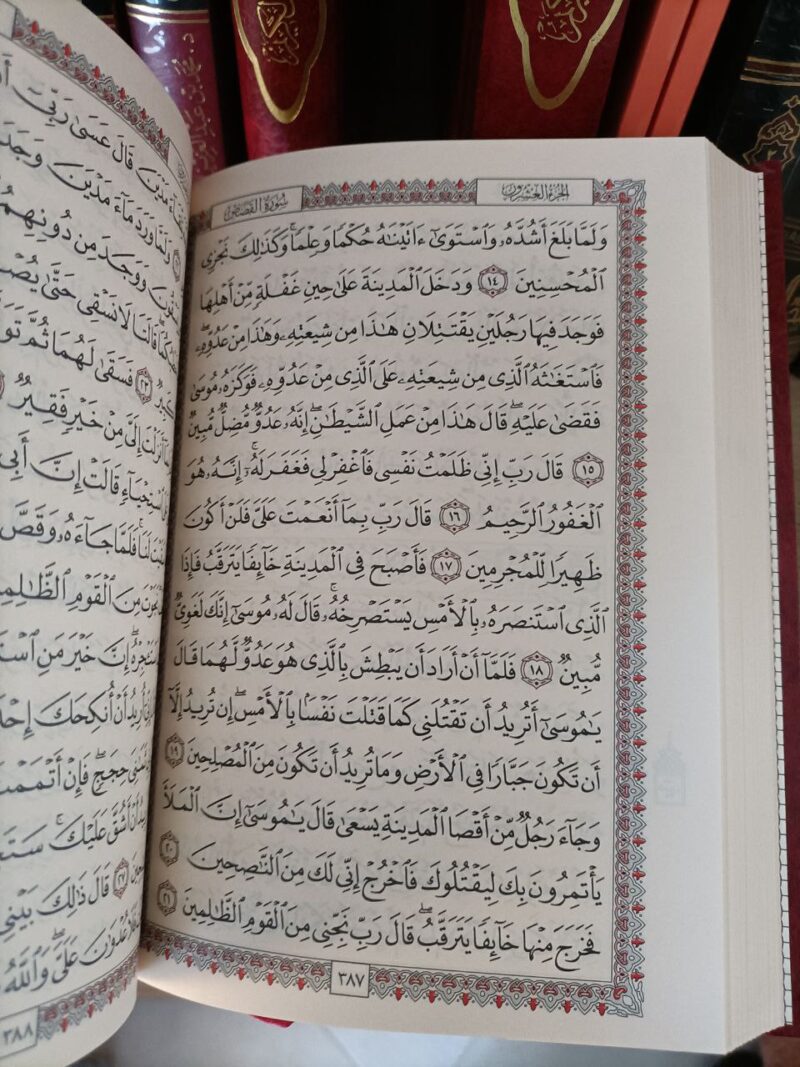 سورة القصص
الجزء العشرون
وَلَمَّا بَلَغَ أَشُدَّهُۥ وَٱسْتَوَىٰٓ ءَاتَيْنَٰهُ حُكْمًا وَعِلْمًا ۚ وَكَذَٰلِكَ نَجْزِى
ٱلْمُحْسِنِينَ ١٤ وَدَخَلَ ٱلْمَدِينَةَ عَلَىٰ حِينِ غَفْلَةٍ مِّنْ أَهْلِهَا
فَوَجَدَ فِيهَا رَجُلَيْنِ يَقْتَتِلَانِ هَٰذَا مِن شِيعَتِهِۦ وَهَٰذَا مِنْ عَدُوِّهِۦ ۖ
فَٱسْتَغَٰثَهُ ٱلَّذِى مِن شِيعَتِهِۦ عَلَى ٱلَّذِى مِنْ عَدُوِّهِۦ فَوَكَزَهُۥ مُوسَىٰ
فَقَضَىٰ عَلَيْهِ ۖ قَالَ هَٰذَا مِنْ عَمَلِ ٱلشَّيْطَٰنِ ۖ إِنَّهُۥ عَدُوٌّ مُّضِلٌّ مُّبِينٌ
١٥ قَالَ رَبِّ إِنِّى ظَلَمْتُ نَفْسِى فَٱغْفِرْ لِى فَغَفَرَ لَهُۥٓ ۚ إِنَّهُۥ هُوَ
ٱلْغَفُورُ ٱلرَّحِيمُ ١٦ قَالَ رَبِّ بِمَآ أَنْعَمْتَ عَلَىَّ فَلَنْ أَكُونَ
ظَهِيرًا لِّلْمُجْرِمِينَ ١٧ فَأَصْبَحَ فِى ٱلْمَدِينَةِ خَآئِفًا يَتَرَقَّبُ فَإِذَا
ٱلَّذِى ٱسْتَنصَرَهُۥ بِٱلْأَمْسِ يَسْتَصْرِخُهُۥ ۚ قَالَ لَهُۥ مُوسَىٰٓ إِنَّكَ لَغَوِىٌّ
مُّبِينٌ ١٨ فَلَمَّآ أَنْ أَرَادَ أَن يَبْطِشَ بِٱلَّذِى هُوَ عَدُوٌّ لَّهُمَا قَالَ
يَٰمُوسَىٰٓ أَتُرِيدُ أَن تَقْتُلَنِى كَمَا قَتَلْتَ نَفْسًۢا بِٱلْأَمْسِ ۖ إِن تُرِيدُ إِلَّآ
أَن تَكُونَ جَبَّارًا فِى ٱلْأَرْضِ وَمَا تُرِيدُ أَن تَكُونَ مِنَ ٱلْمُصْلِحِينَ ١٩
وَجَآءَ رَجُلٌ مِّنْ أَقْصَا ٱلْمَدِينَةِ يَسْعَىٰ قَالَ يَٰمُوسَىٰٓ إِنَّ ٱلْمَلَأَ
يَأْتَمِرُونَ بِكَ لِيَقْتُلُوكَ فَٱخْرُجْ إِنِّى لَكَ مِنَ ٱلنَّٰصِحِينَ ٢٠
فَخَرَجَ مِنْهَا خَآئِفًا يَتَرَقَّبُ ۖ قَالَ رَبِّ نَجِّنِى مِنَ ٱلْقَوْمِ ٱلظَّٰلِمِينَ ٢١
٣٨٧
مَدْيَنَ قَالَ عَسَىٰ رَبِّىٓ
وَلَمَّا وَرَدَ مَآءَ مَدْيَنَ وَجَدَ
وَوَجَدَ مِن دُونِهِمُ
قَالَتَا لَا نَسْقِى حَتَّىٰ
٢٣ فَسَقَىٰ لَهُمَا ثُمَّ
أَنزَلْتَ إِلَىَّ مِنْ خَيْرٍ فَقِيرٌ
ٱسْتِحْيَآءٍ قَالَتْ إِنَّ أَبِى
لَنَا ۚ فَلَمَّا جَآءَهُۥ وَقَصَّ
مِنَ ٱلْقَوْمِ
إِنَّ خَيْرَ مَنِ
أُرِيدُ أَنْ أُنكِحَكَ
حِجَجٍ ۖ فَإِنْ
أَنْ أَشُقَّ عَلَيْكَ ۚ
٢٧ قَالَ ذَٰلِكَ بَيْنِى
عُدْوَٰنَ عَلَىَّ ۖ وَٱللَّهُ
٣٨٨